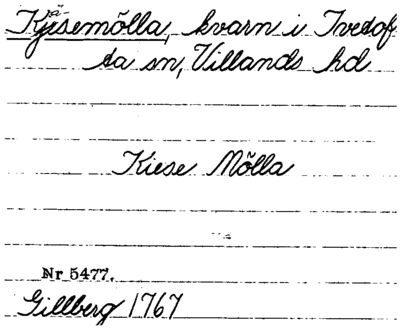 Kjesemölla, kvarn i Ivetof-
ta sn, Villands hd
Kiese Mölla
Nr 5477.
Gillberg 1767